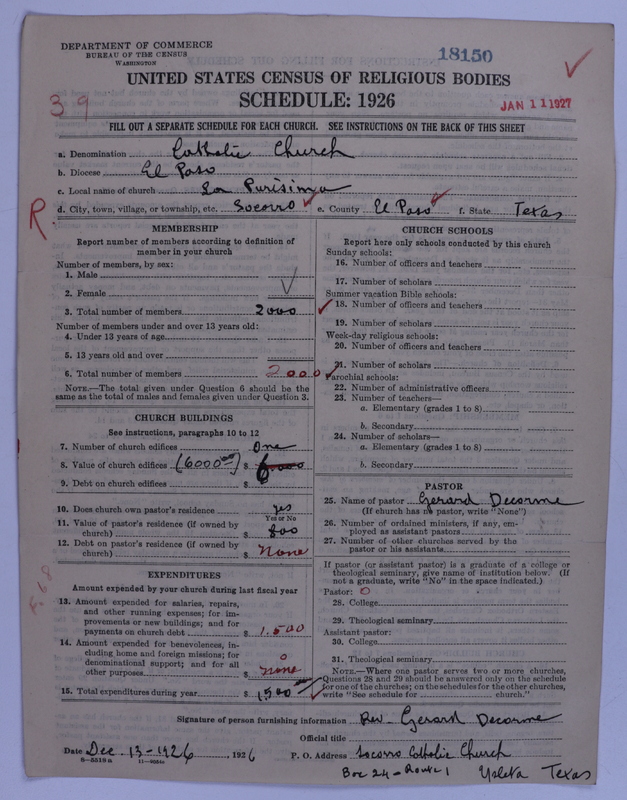 DEPARTMENT OF COMMERCE
BUREAU OF THE CENSUS
WASHINGTON
18150
UNITED STATES CENSUS OF RELIGIOUS BODIES
39
SCHEDULE: 1926
JAN 11 1927
FILL OUT A SEPARATE SCHEDULE FOR EACH CHURCH. SEE INSTRUCTIONS ON THE BACK OF THIS SHEET
a. Denomination Catholic Church
b. Diocese El Paso
c. Local name of church La Purisima
R
d. City, town, village, or township, etc. Socorro e. County El Paso f. State Texas
MEMBERSHIP
Report number of members according to definition of
member in your church
Number of members, by sex:
1. Male
2. Female
3. Total number of members 2000
Number of members under and over 13 years old:
4. Under 13 years of age
5. 13 years old and over
6. Total number of members 2000
NOTE.—The total given under Question 6 should be the
same as the total of males and females given under Question 3.
CHURCH BUILDINGS
See instructions, paragraphs 10 to 12
7. Number of church edifices One
8. Value of church edifices (6000 00) $ 6.000
9. Debt on church edifices $
10. Does church own pastor's residence yes
Yes or No
11. Value of pastor's residence (if owned by
church) $ 800
12. Debt on pastor's residence (if owned by
church) $ None
EXPENDITURES
Amount expended by your church during last fiscal year
13. Amount expended for salaries, repairs,
and other running expenses; for im-
provements or new buildings; and for
payments on church debt $ 1.500
14. Amount expended for benevolences, in-
cluding home and foreign missions; for
denominational support; and for all
other purposes $ 0 none
15. Total expenditures during year $ 1,500 00
CHURCH SCHOOLS
Report here only schools conducted by this church
Sunday schools:
16. Number of officers and teachers
17. Number of scholars
Summer vacation Bible schools:
18. Number of officers and teachers
19. Number of scholars
Week-day religious schools:
20. Number of officers and teachers
21. Number of scholars
Parochial schools:
22. Number of administrative officers
23. Number of teachers—
a. Elementary (grades 1 to 8)
b. Secondary
24. Number of scholars—
a. Elementary (grades 1 to 8)
b. Secondary
PASTOR
25. Name of pastor Gerard Decorme
(If church has no pastor, write "None")
26. Number of ordained ministers, if any, em-
ployed as assistant pastors
27. Number of other churches served by the
pastor or his assistants
If pastor (or assistant pastor) is a graduate of a college or
theological seminary, give name of institution below. (If
not a graduate, write "No" in the space indicated.)
Pastor: 0
28. College
29. Theological seminary
Assistant pastor:
30. College
31. Theological seminary
NOTE.—Where one pastor serves two or more churches,
Questions 28 and 29 should be answered only on the schedule
for one of the churches; on the schedules for the other churches,
write "See schedule for church."
Signature of person furnishing information Rev. Gerard Decorme
Official title
Date Dec. 13-1926, 1926 P. O. Address Socorro Catholic Church
8—5518a 11—9054
Box 24 - Route 1 Ysleta Texas